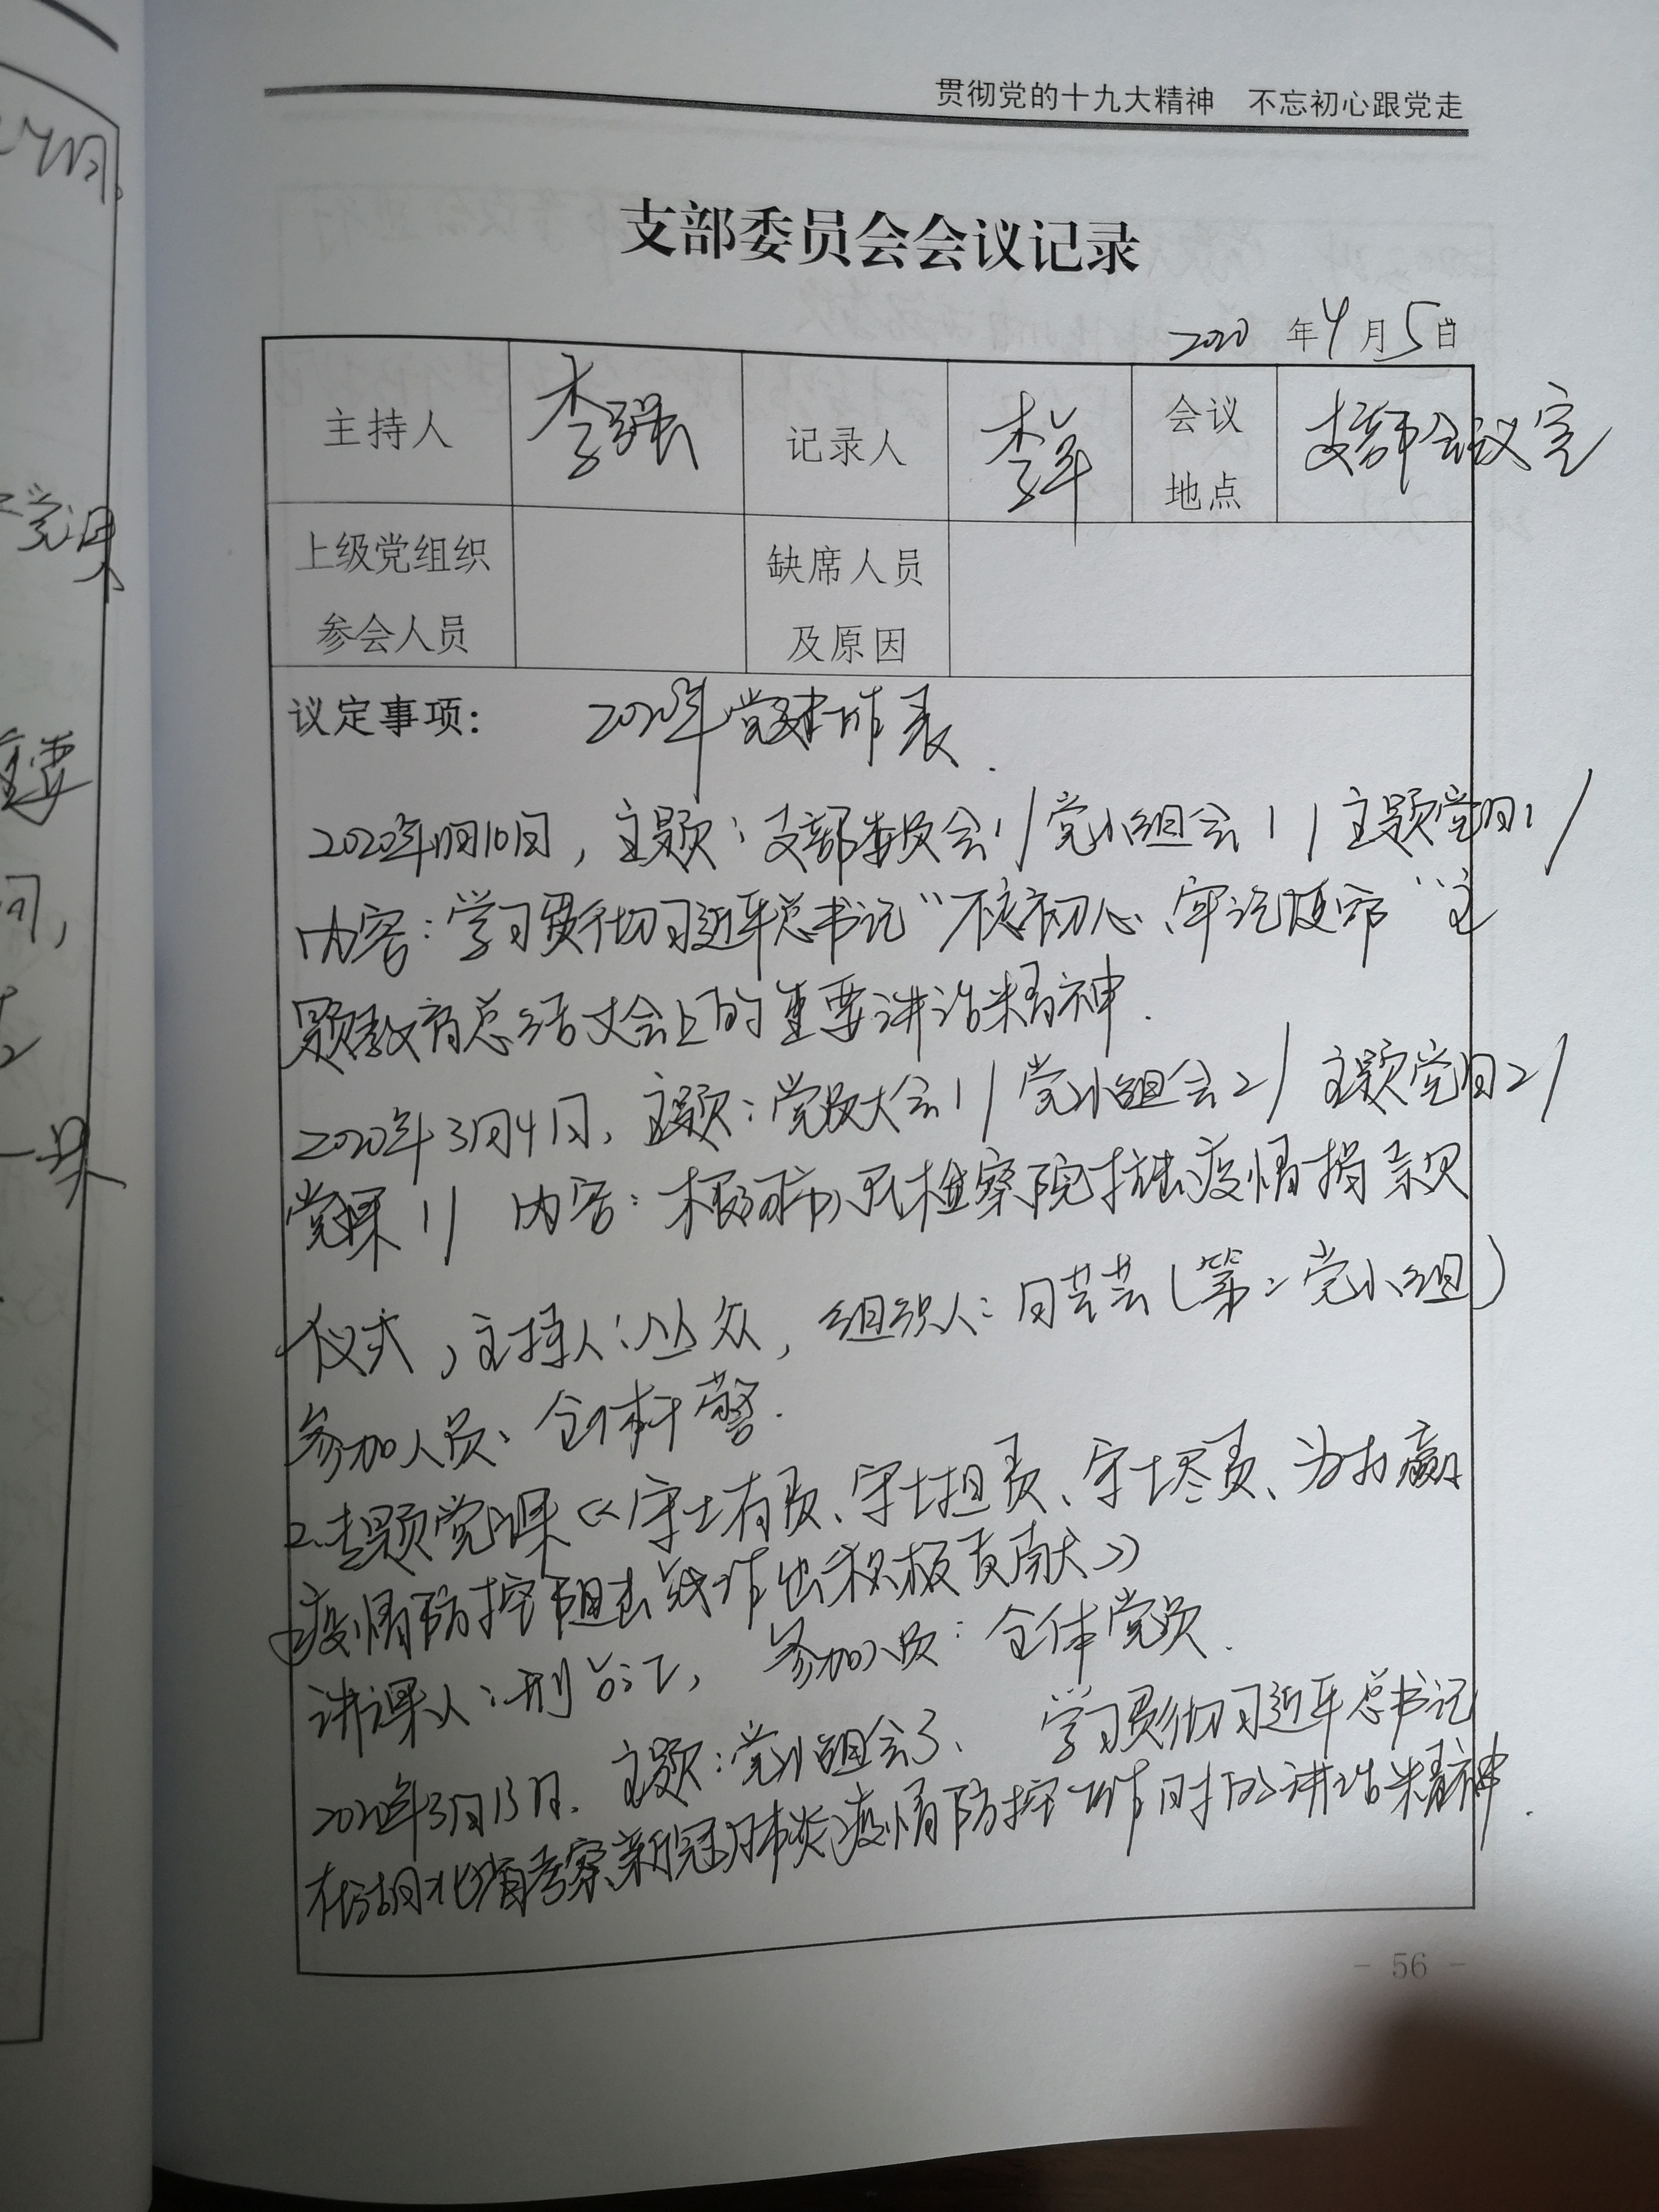 贯彻党的十九大精神 不忘初心跟党走
支部委员会会议记录
2020 年 4 月 5 日
主持人 李强 记录人 李羊 会议地点 支部会议室
上级党组织参会人员 缺席人员及原因
议定事项： 2020年党建工作表.
2020年1月10日，主题：支部委员会1/党小组会1/主题党日1/
内容：学习贯彻习近平总书记“不忘初心、牢记使命”主
题教育总结大会上的重要讲话精神.
2020年3月4日，主题：党员大会1/党小组会2/主题党日2/
党课1/ 内容：根河市人民检察院抗击疫情捐款
仪式，主持人：丛众，组织人：闫芸芸（第二党小组）
参加人员：全体干警.
2.专题党课《守土有责、守土担责、守土尽责、为打赢
疫情防控阻击战作出积极贡献》
讲课人：，参加人员：全体党员.
2020年3月13日.主题：党小组会3、学习贯彻习近平总书记
在湖北省考察新冠肺炎疫情防控工作时的讲话精神.
- 56 -
党课
重要